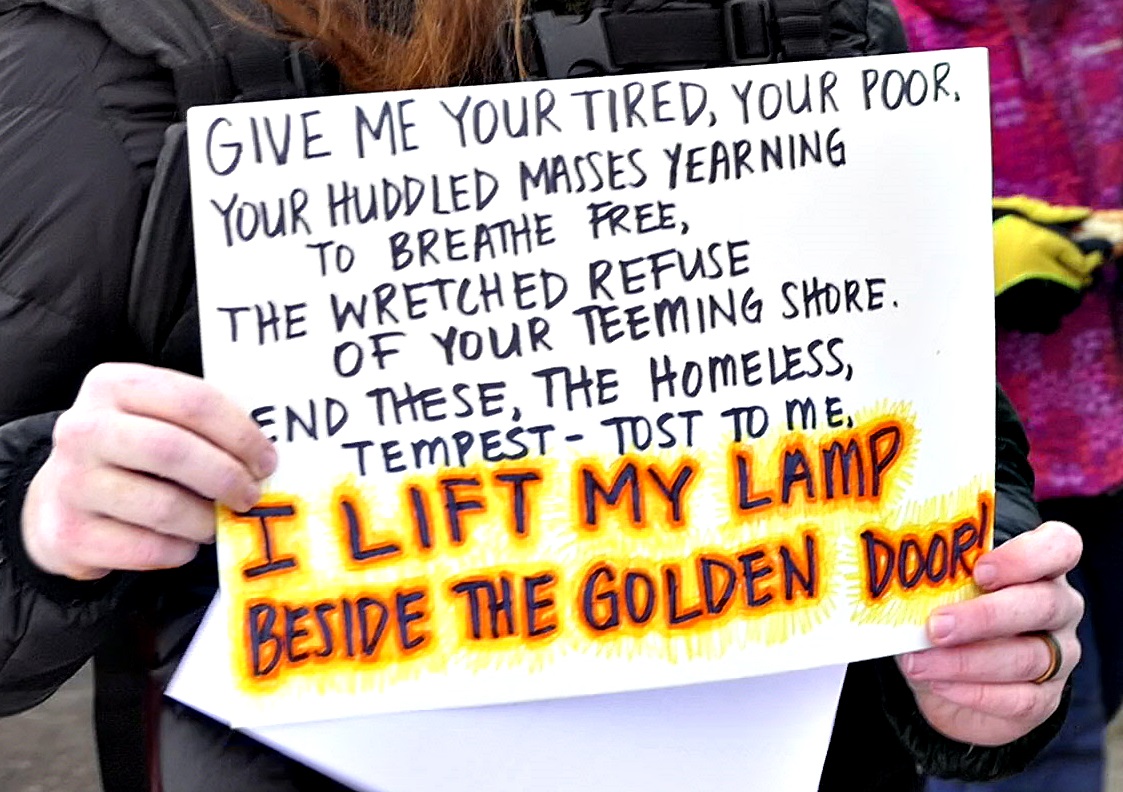 GIVE ME YOUR TIRED, YOUR POOR,
YOUR HUDDLED MASSES YEARNING
TO BREATHE FREE,
THE WRETCHED REFUSE
OF YOUR TEEMING SHORE.
END THESE, THE HOMELESS,
TEMPEST-TOST TO ME,
I LIFT MY LAMP
BESIDE THE GOLDEN DOOR!